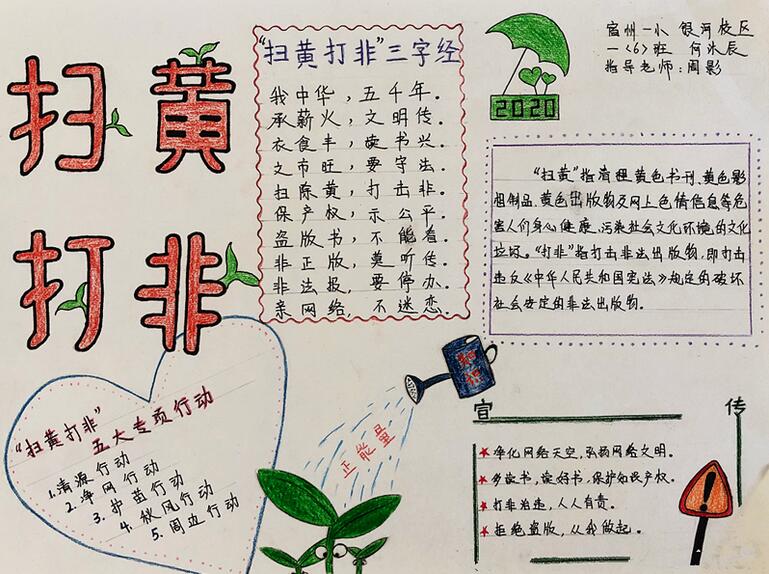 扫黄
打非
"扫黄打非"三字经
我中华，五千年。
承薪火，文明传。
衣食丰，读书兴。
文市旺，要守法。
扫除黄，打击非。
保产权，示公平。
盗版书，不能看。
非正版，莫听传。
非法报，要停办。
亲网络，不迷恋。
2020
宿州一小 银河校区
一〈6〉班 何沐辰
指导老师：周影
"扫黄"指清理黄色书刊、黄色影
相制品、黄色出版物及网上色情信息等危
害人们身心健康、污染社会文化环境的文化
垃圾。"打非"指打击非法出版物，即打击
违反《中华人民共和国宪法》规定的破坏
社会安定的非法出版物。
"扫黄打非"
五大专项行动
1.清源行动
2.净网行动
3.护苗行动
4.秋风行动
5.固边行动
知识
正能量
宣传
★净化网络天空，弘扬网络文明。
★多读书，读好书，保护知识产权。
★打非治违，人人有责。
★拒绝盗版，从我做起。